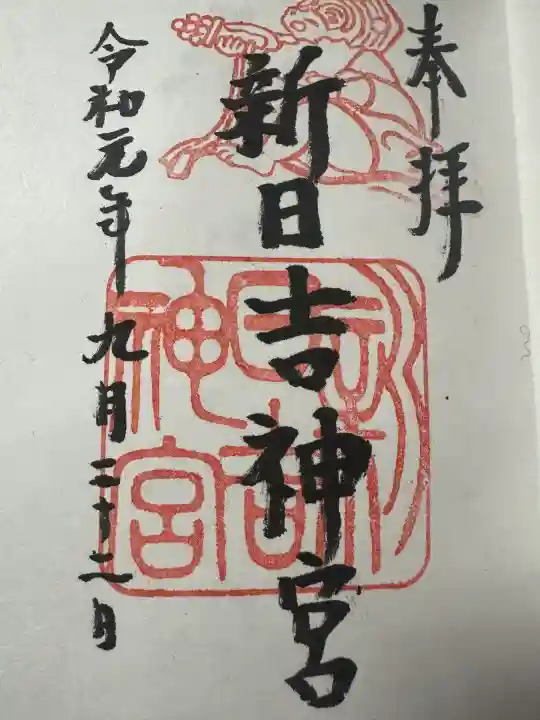 奉拝
新日吉神宮
新日吉神宮
令和元年九月二十二日